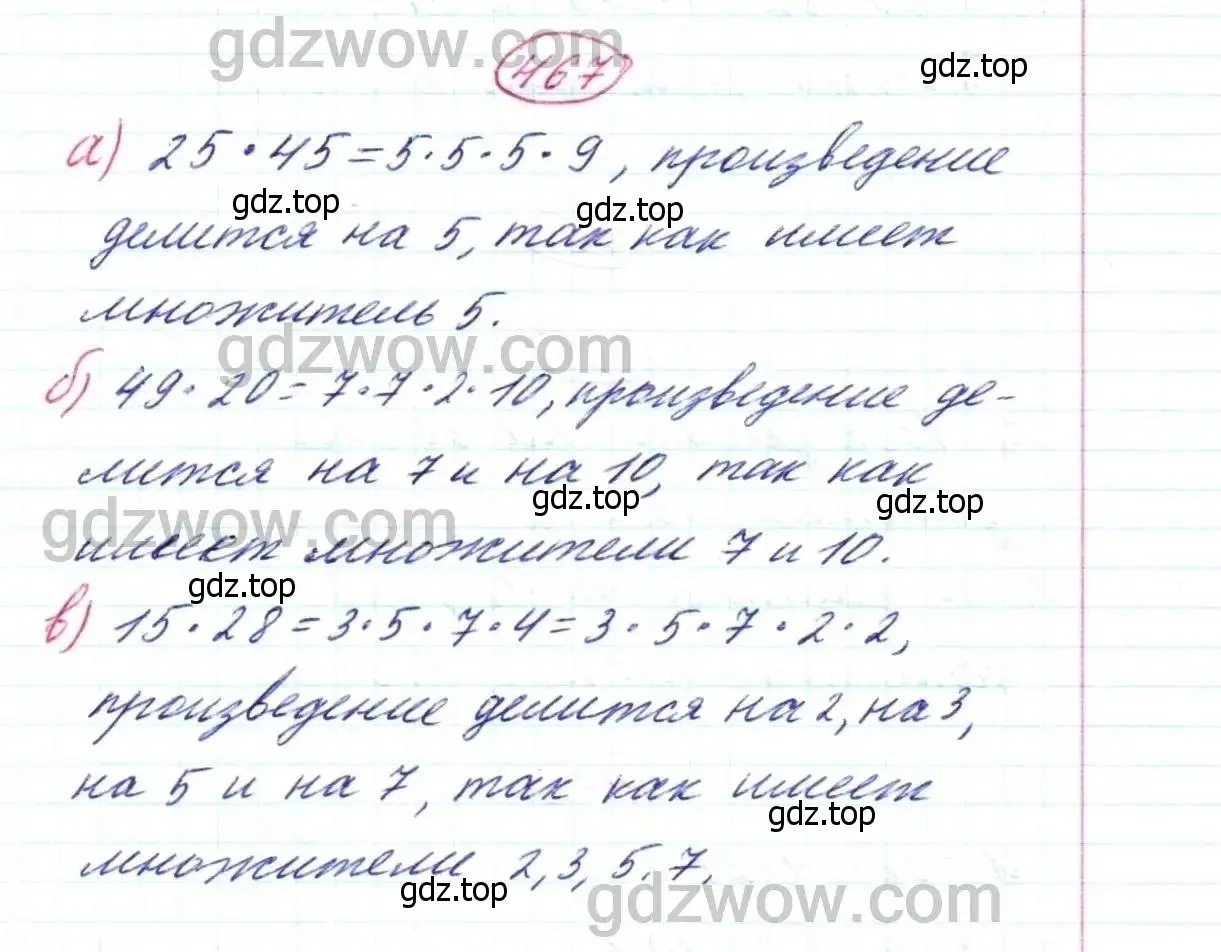 gdzwow.com
467
gdz.top
а) 25 · 45 = 5 · 5 · 5 · 9, произведение
gdz.top gdz.top
делится на 5, так как имеет
множитель 5.
gdzwow.com
б) 49 · 20 = 7 · 7 · 2 · 10, произведение де-
лится на 7 и на 10, так как
gdz.top gdz.top
gdzwow.com
имеет множители 7 и 10.
gdz.top
в) 15 · 28 = 3 · 5 · 7 · 4 = 3 · 5 · 7 · 2 · 2,
произведение делится на 2, на 3,
на 5 и на 7, так как имеет
gdz.top
множители 2, 3, 5, 7.
gdz.top
gdzwow.com